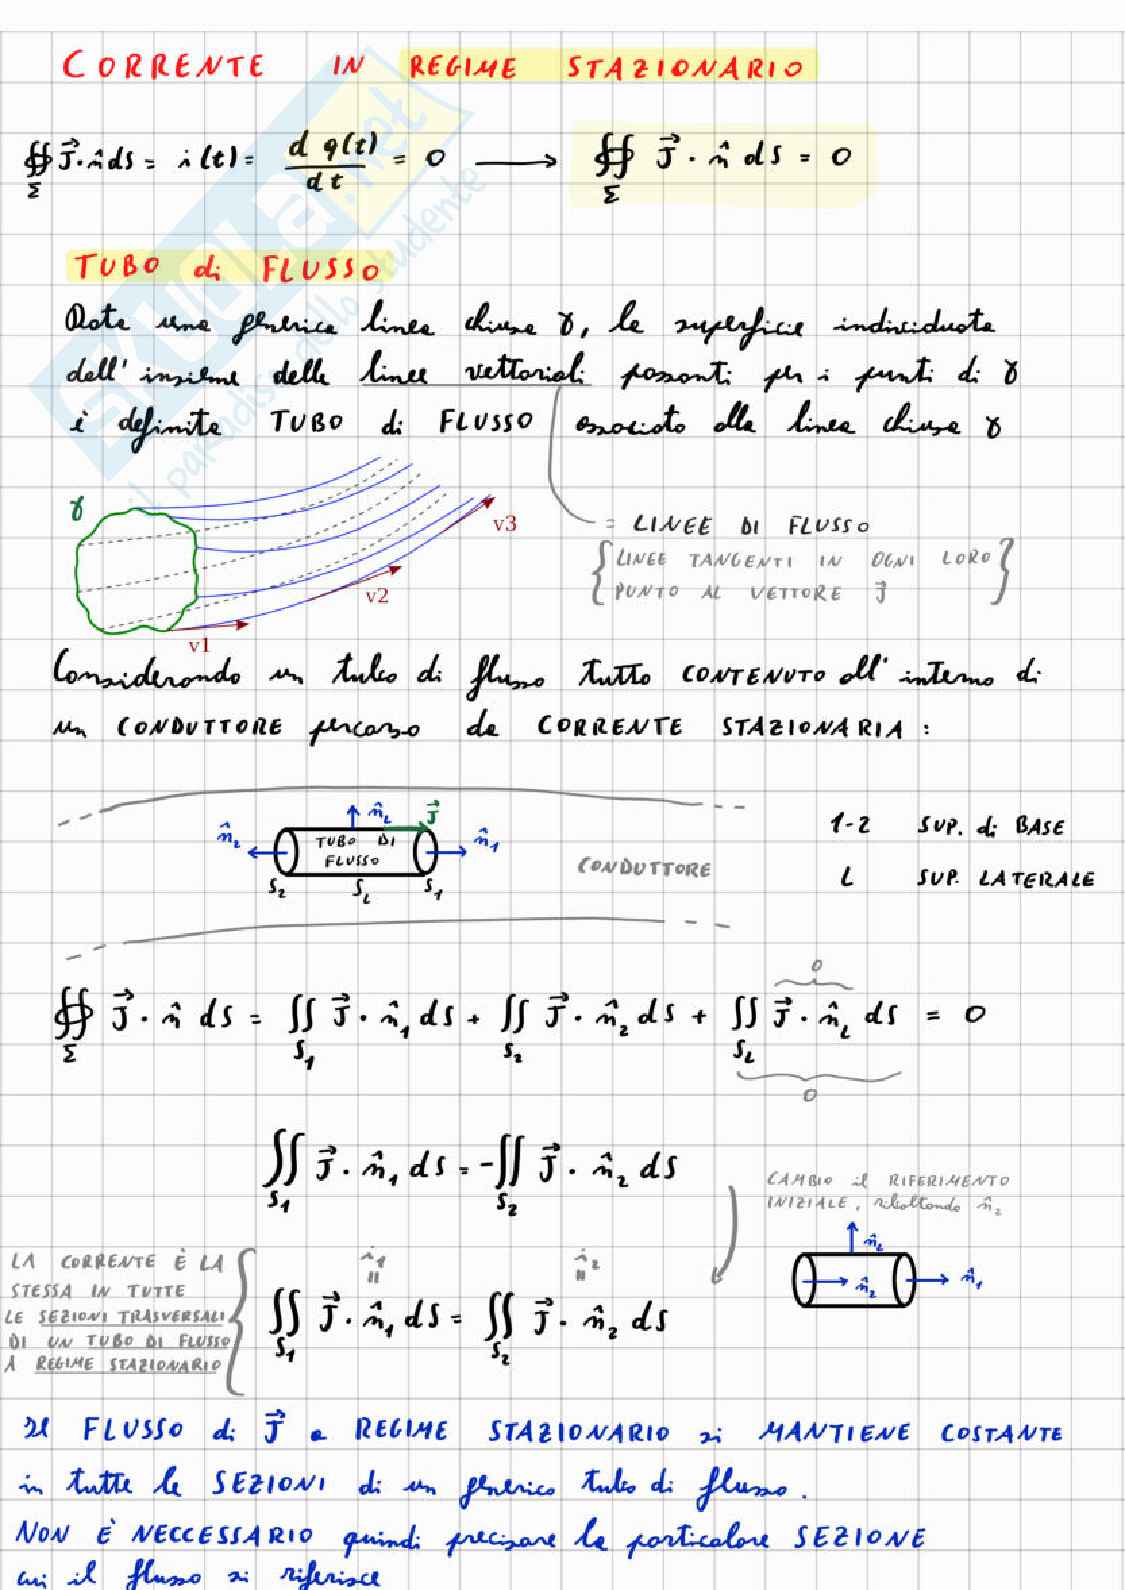 CORRENTE IN REGIME STAZIONARIO
∯_Σ J⃗ · n̂ dS = i(t) = d q(t) / dt = 0 → ∯_Σ J⃗ · n̂ dS = 0
TUBO di FLUSSO
Data una generica linea chiusa γ, la superficie individuata
dall'insieme delle linee vettoriali passanti per i punti di γ
è definita TUBO di FLUSSO associato alla linea chiusa γ
γ
v1
v2
v3
= LINEE DI FLUSSO
{LINEE TANGENTI IN OGNI LORO
PUNTO AL VETTORE J⃗}
Considerando un tubo di flusso tutto CONTENUTO all'interno di
un CONDUTTORE percorso da CORRENTE STAZIONARIA :
n̂₂ n̂_L J⃗ n̂₁
TUBO DI
FLUSSO
S₂ S_L S₁
CONDUTTORE
1-2 SUP. di BASE
L SUP. LATERALE
∯_Σ J⃗ · n̂ dS = ∬_S₁ J⃗ · n̂₁ dS + ∬_S₂ J⃗ · n̂₂ dS + ∬_S_L J⃗ · n̂_L dS = 0
0
0
∬_S₁ J⃗ · n̂₁ dS = -∬_S₂ J⃗ · n̂₂ dS
CAMBIO il RIFERIMENTO
INIZIALE, ribaltando n̂₂
n̂_L
n̂₂ n̂₁
LA CORRENTE È LA
STESSA IN TUTTE
LE SEZIONI TRASVERSALI
DI UN TUBO DI FLUSSO
A REGIME STAZIONARIO
i₁ = i₂ =
∬_S₁ J⃗ · n̂₁ dS = ∬_S₂ J⃗ · n̂₂ dS
Il FLUSSO di J⃗ a REGIME STAZIONARIO si MANTIENE COSTANTE
in tutte le SEZIONI di un generico tubo di flusso.
NON È NECCESSARIO quindi precisare la particolare SEZIONE
cui il flusso si riferisce
SKUOLA.net
il paradiso dello studente